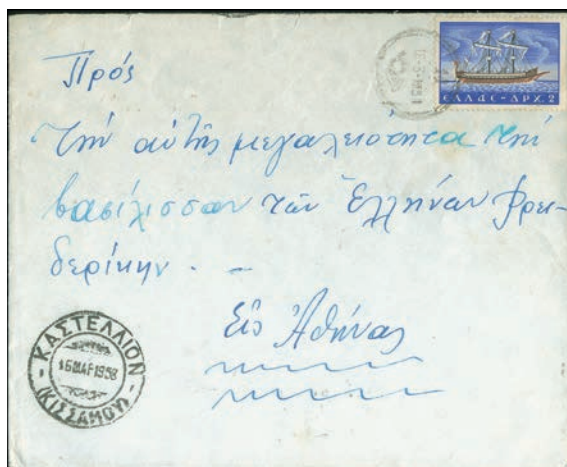 ΕΛΛΑΣ - ΔΡΧ. 2
Πρός
Τήν αὐτῆς μεγαλειότητα τήν
βασίλισσαν τῶν Ἑλλήνων Φρει-
δερίκην . –
Εἰς Ἀθήνας
ΚΑΣΤΕΛΛΙΟΝ
16 ΜΑΡ 1958
(ΚΙΣΣΑΜΟΥ)